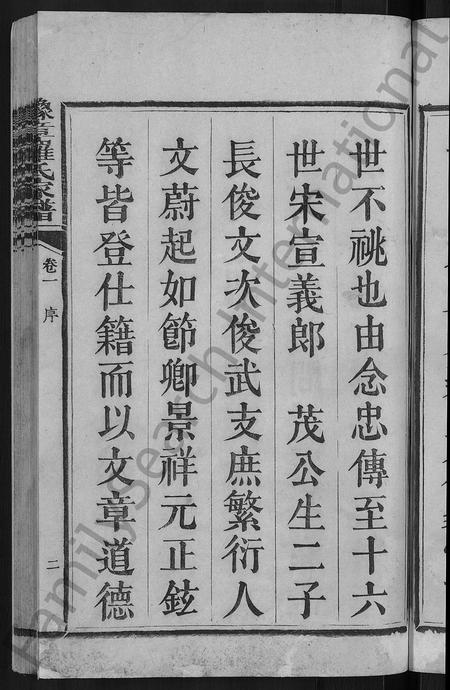 世不祧也由念忠傳至十六
世宋宣義郎 茂公生二子
長俊文次俊武支庶繁衍人
文蔚起如節卿景祥元正鉉
等皆登仕籍而以文章道德
豫章羅氏家譜
卷一 序
二
FamilySearch International